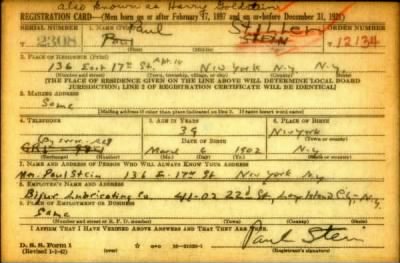 also known as Harry Goldstein
REGISTRATION CARD—(Men born on or after February 17, 1897 and on or before December 31, 1921)
SERIAL NUMBER 1. NAME (Print) ORDER NUMBER
T 2308 Paul Stein 12134
2. PLACE OF RESIDENCE (Print)
136 East 17th St. Apt. 14 New York N.Y. N.Y.
(Number and street) (Town, township, village, or city) (County) (State)
[THE PLACE OF RESIDENCE GIVEN ON THE LINE ABOVE WILL DETERMINE LOCAL BOARD
JURISDICTION; LINE 2 OF REGISTRATION CERTIFICATE WILL BE IDENTICAL]
3. MAILING ADDRESS
Same
[Mailing address if other than place indicated on line 2. If same insert word same]
4. TELEPHONE 5. AGE IN YEARS 6. PLACE OF BIRTH
39 New York
DATE OF BIRTH (Town or county)
March 6 1902 N.Y.
(Mo.) (Day) (Yr.) (State or country)
7. NAME AND ADDRESS OF PERSON WHO WILL ALWAYS KNOW YOUR ADDRESS
Mrs. Paul Stein 136 E. 17th St New York N.Y.
8. EMPLOYER'S NAME AND ADDRESS
Bijur Lubricating Co. 41-02 22d St, Long Island City, N.Y.
9. PLACE OF EMPLOYMENT OR BUSINESS
Same
(Number and street or R. F. D. number) (Town) (County) (State)
I AFFIRM THAT I HAVE VERIFIED ABOVE ANSWERS AND THAT THEY ARE TRUE.
D. S. S. Form 1
(Revised 1-1-42)
Paul Stein